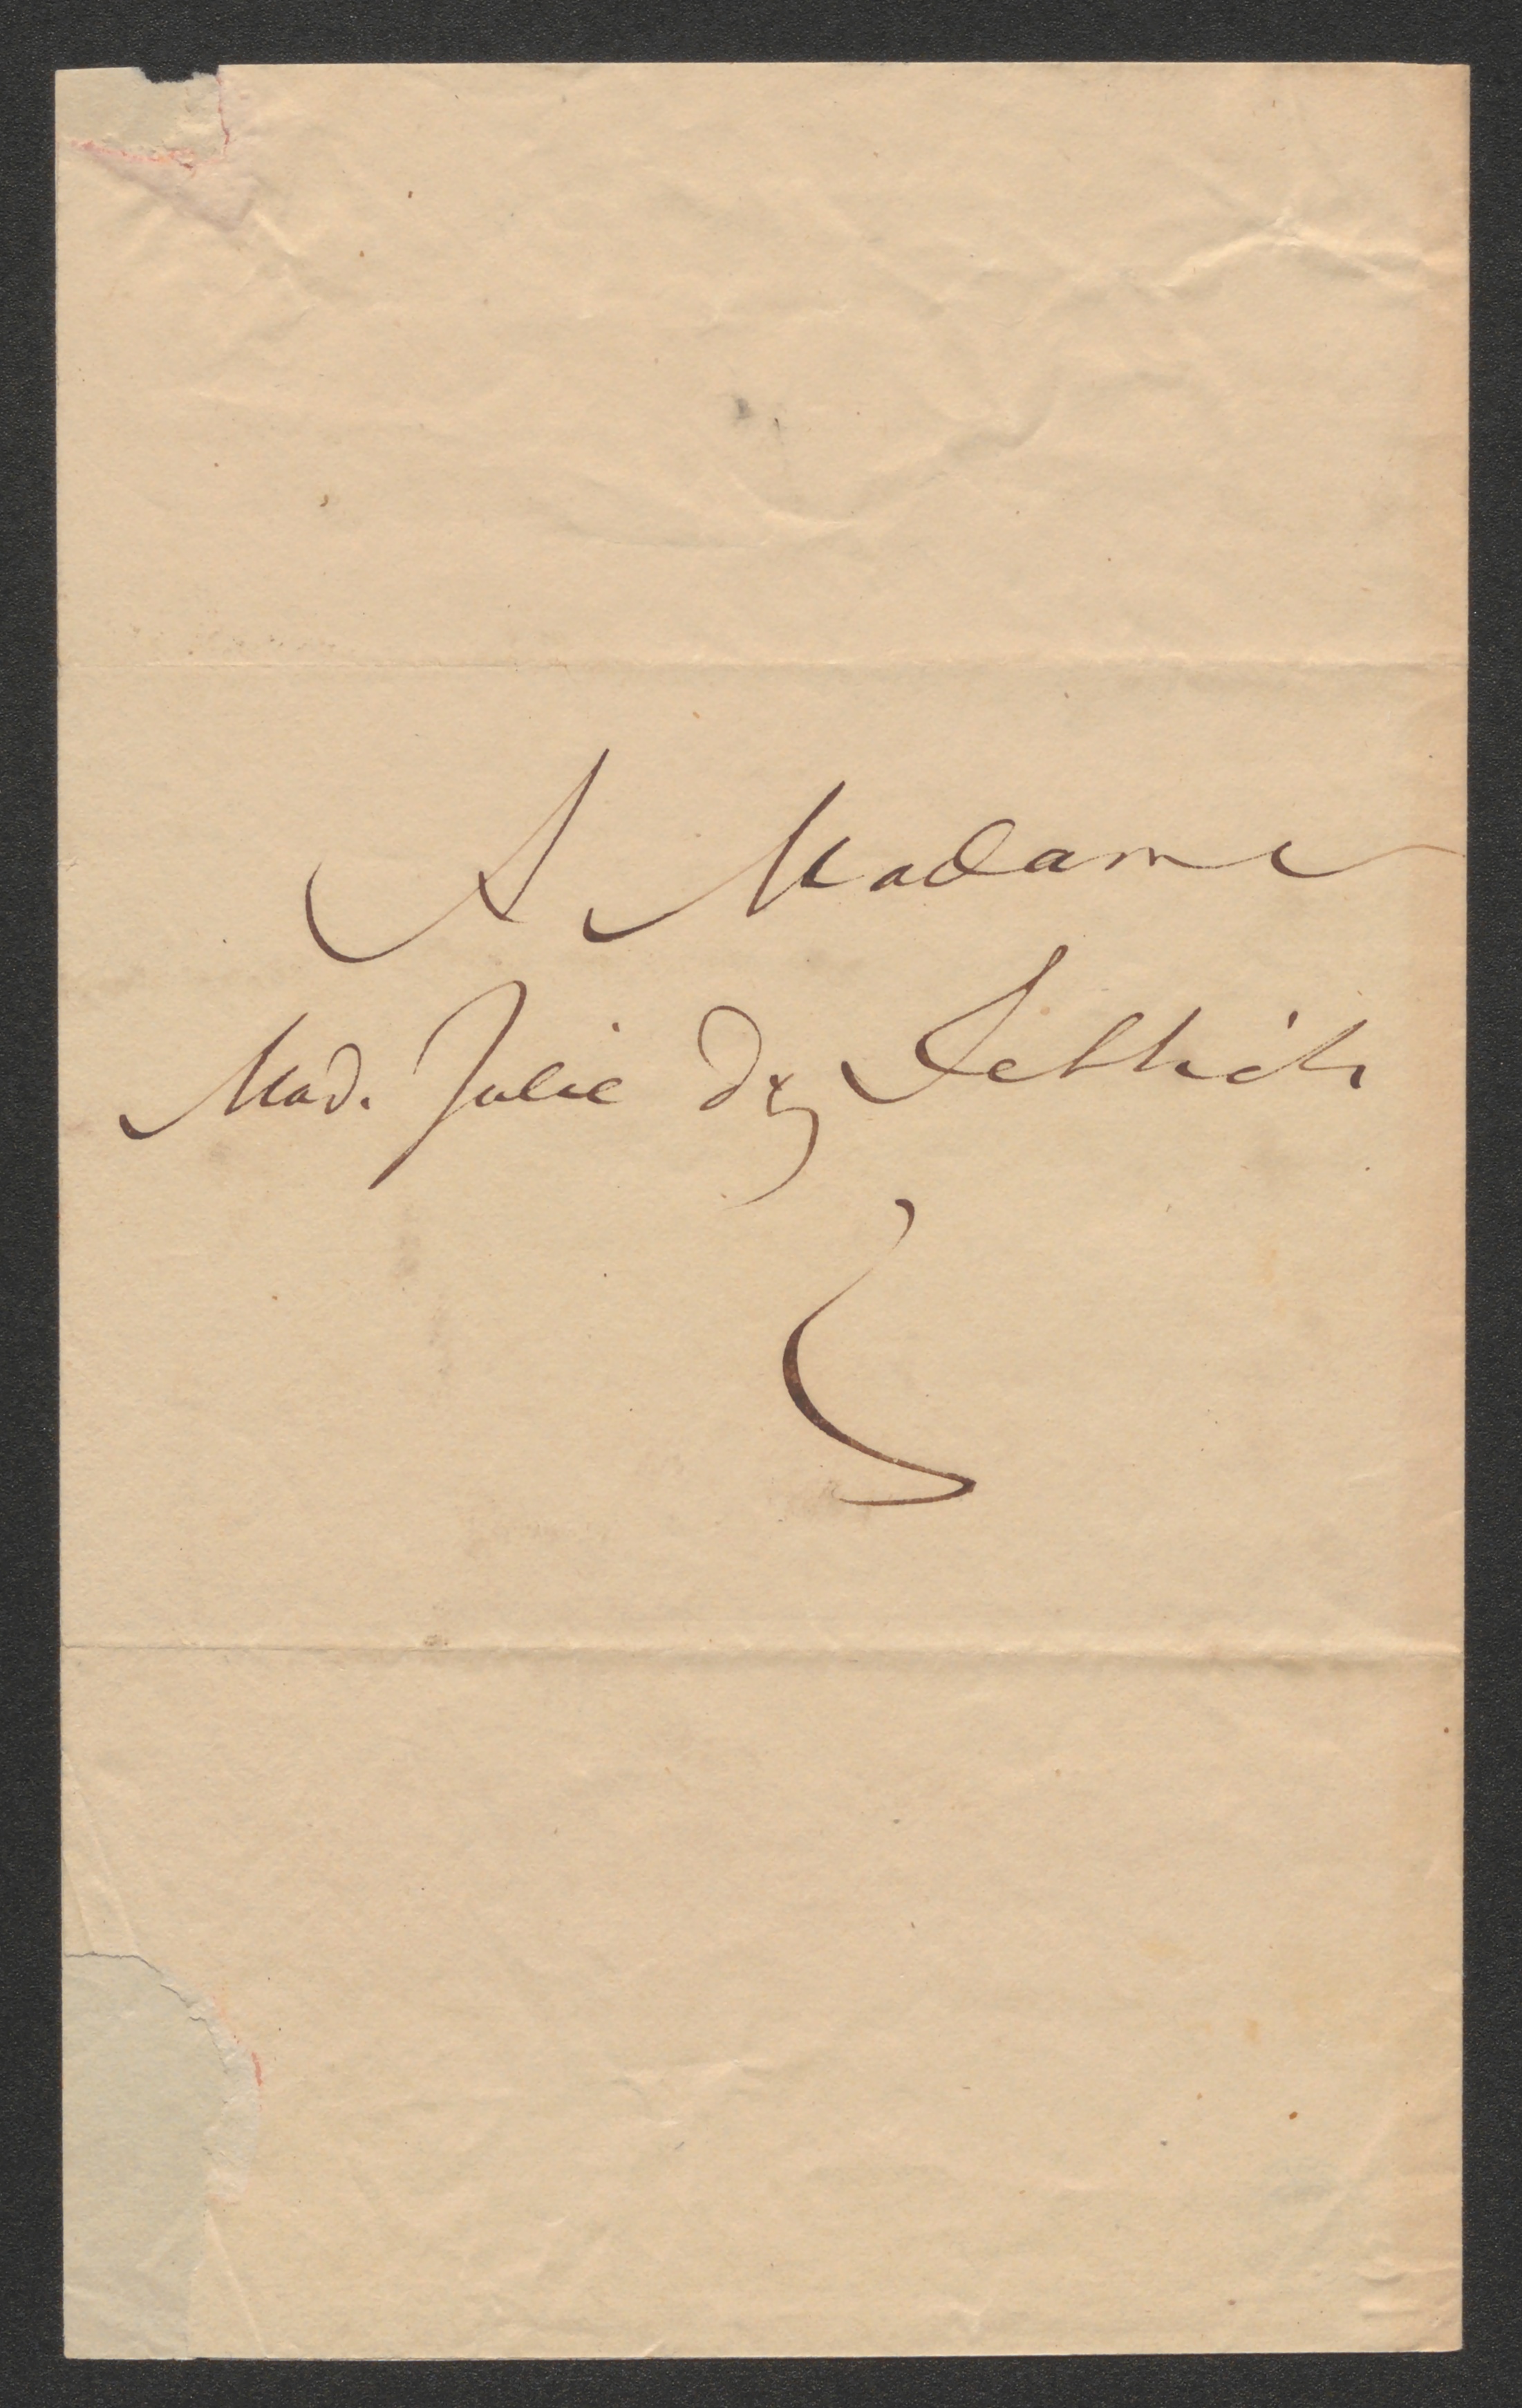 A Madame
Mad. Julie de Rettich